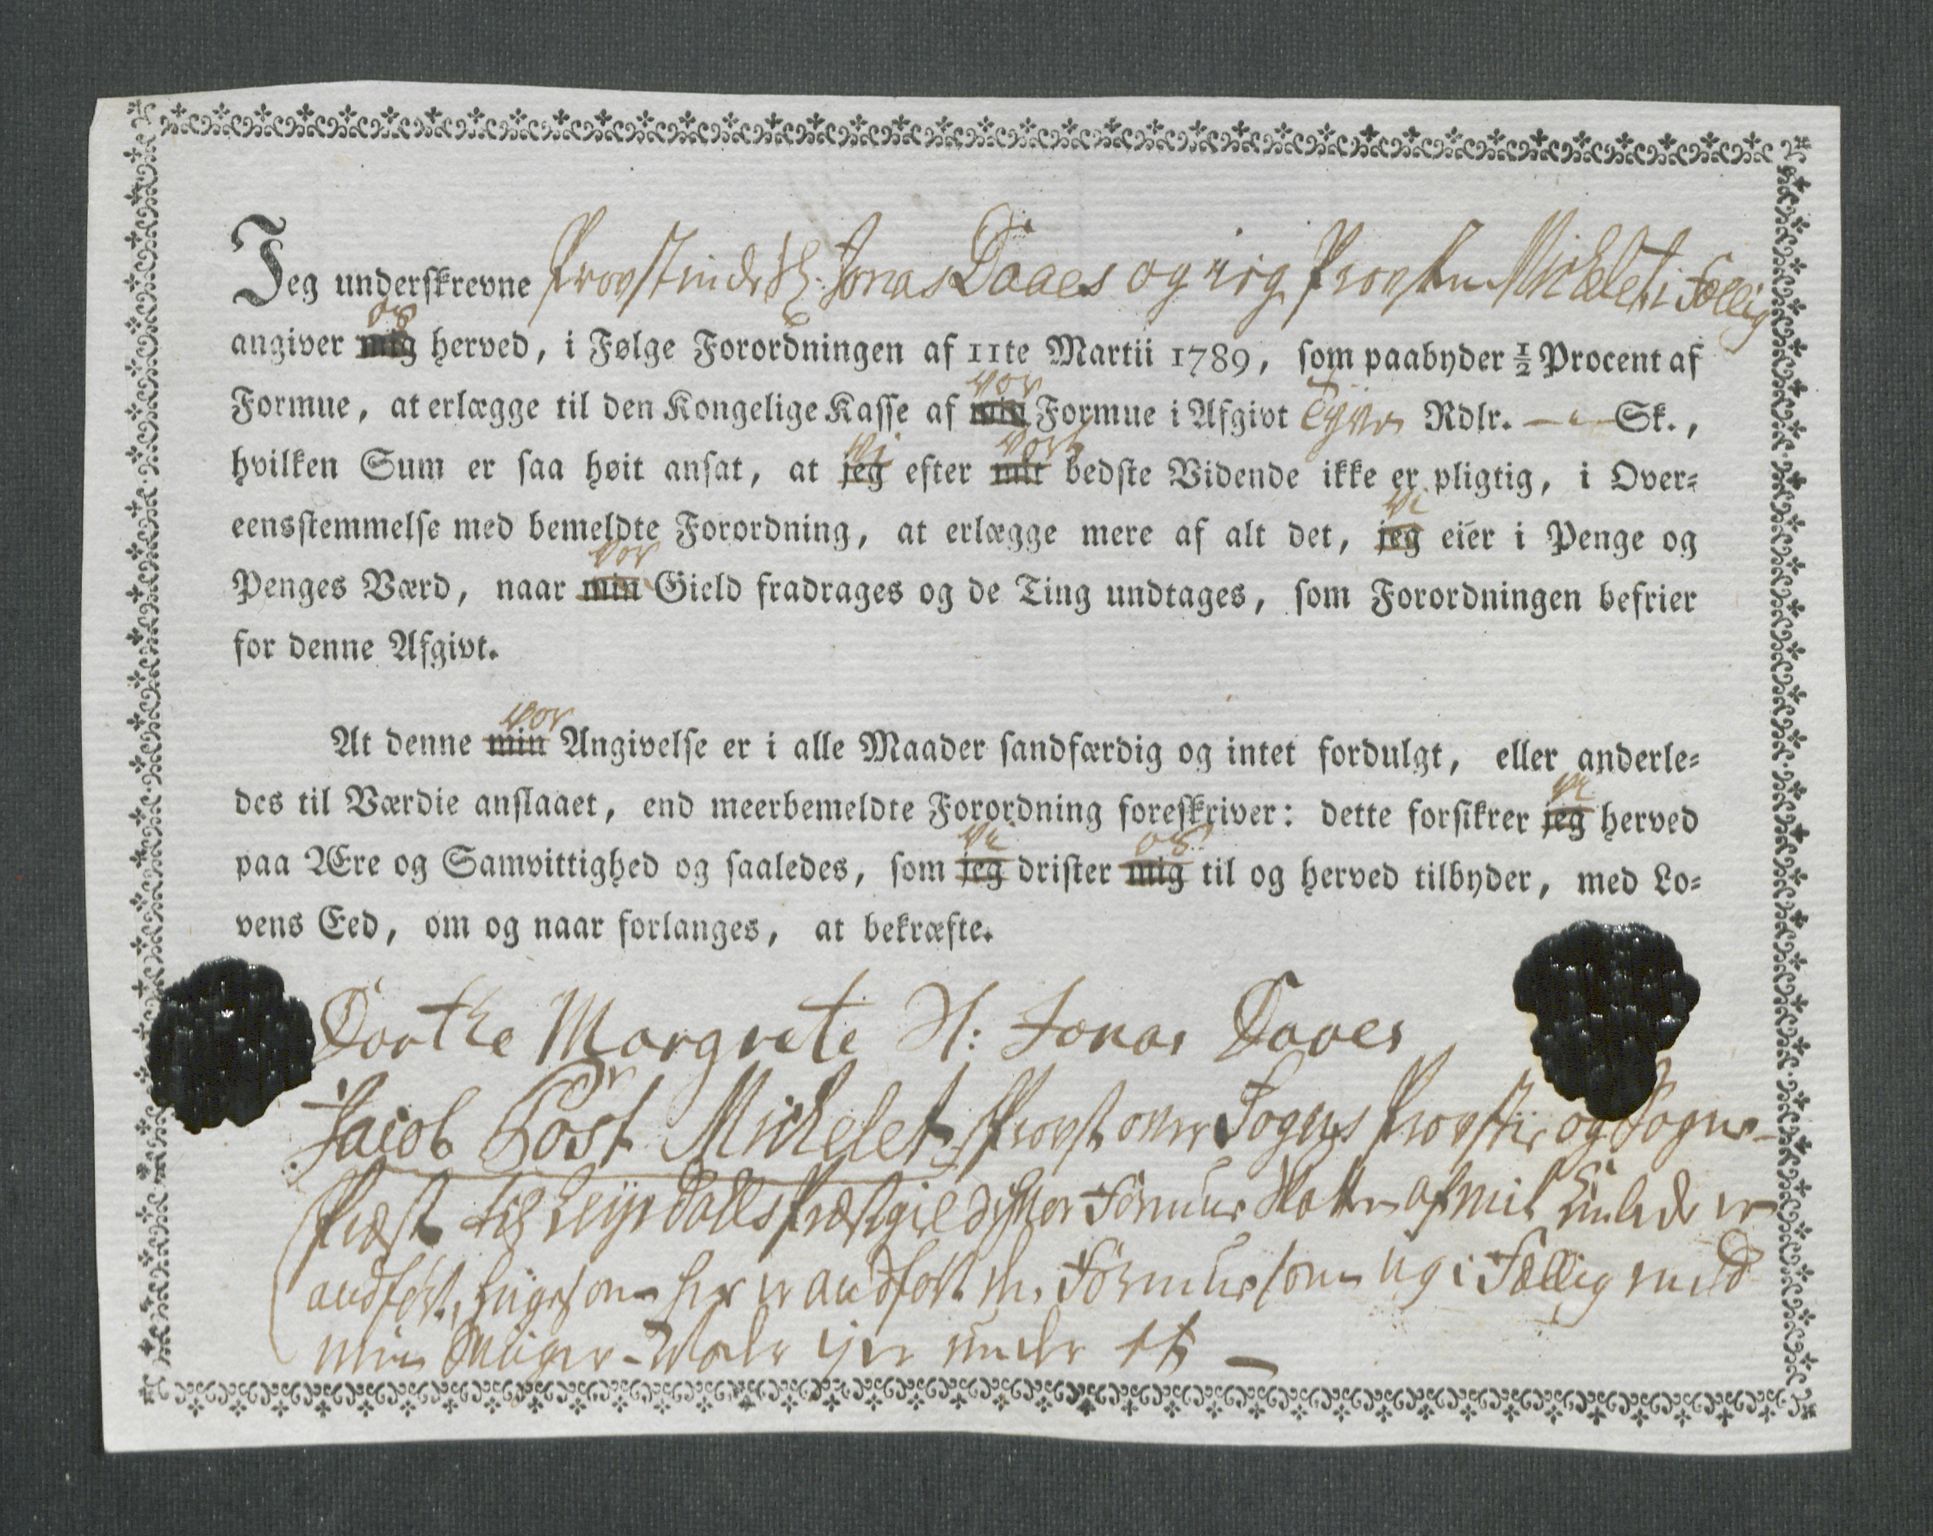 Jeg underskrevne Provstinde Sl. Jonas Daaes og ieg Provsten Michelet i Fællig
os
angiver mig herved, i Følge Forordningen af 11te Martii 1789, som paabyder ½ Procent af
vor
Formue, at erlægge til den Kongelige Kasse af min Formue i Afgivt Rdlr. — " — Sk.,
vi vort
hvilken Sum er saa høit ansat, at jeg efter mit bedste Vidende ikke er pligtig, i Over-
vi
eensstemmelse med bemeldte Forordning, at erlægge mere af alt det, jeg eier i Penge og
vor
Penges Værd, naar min Gield fradrages og de Ting undtages, som Forordningen befrier
for denne Afgivt.
vor
At denne min Angivelse er i alle Maader sandfærdig og intet fordulgt, eller anderle-
vi
des til Værdie anslaaet, end meerbemeldte Forordning foreskriver: dette forsikrer jeg herved
vi os
paa Ære og Samvittighed og saaledes, som jeg drister mig til og herved tilbyder, med Lo-
vens Eed, om og naar forlanges, at bekræfte.
Dorthe Margrete Sl: Jonas Daaes
Jacob Post Michelet Provst over Sogns Provstie og Sogne-
Præst til Leyrdalls Præstegield hvor Formue Skatten af mit er
andført, her er andført den Formue som ieg i Fællig med
min Svigermoder eyer under et —